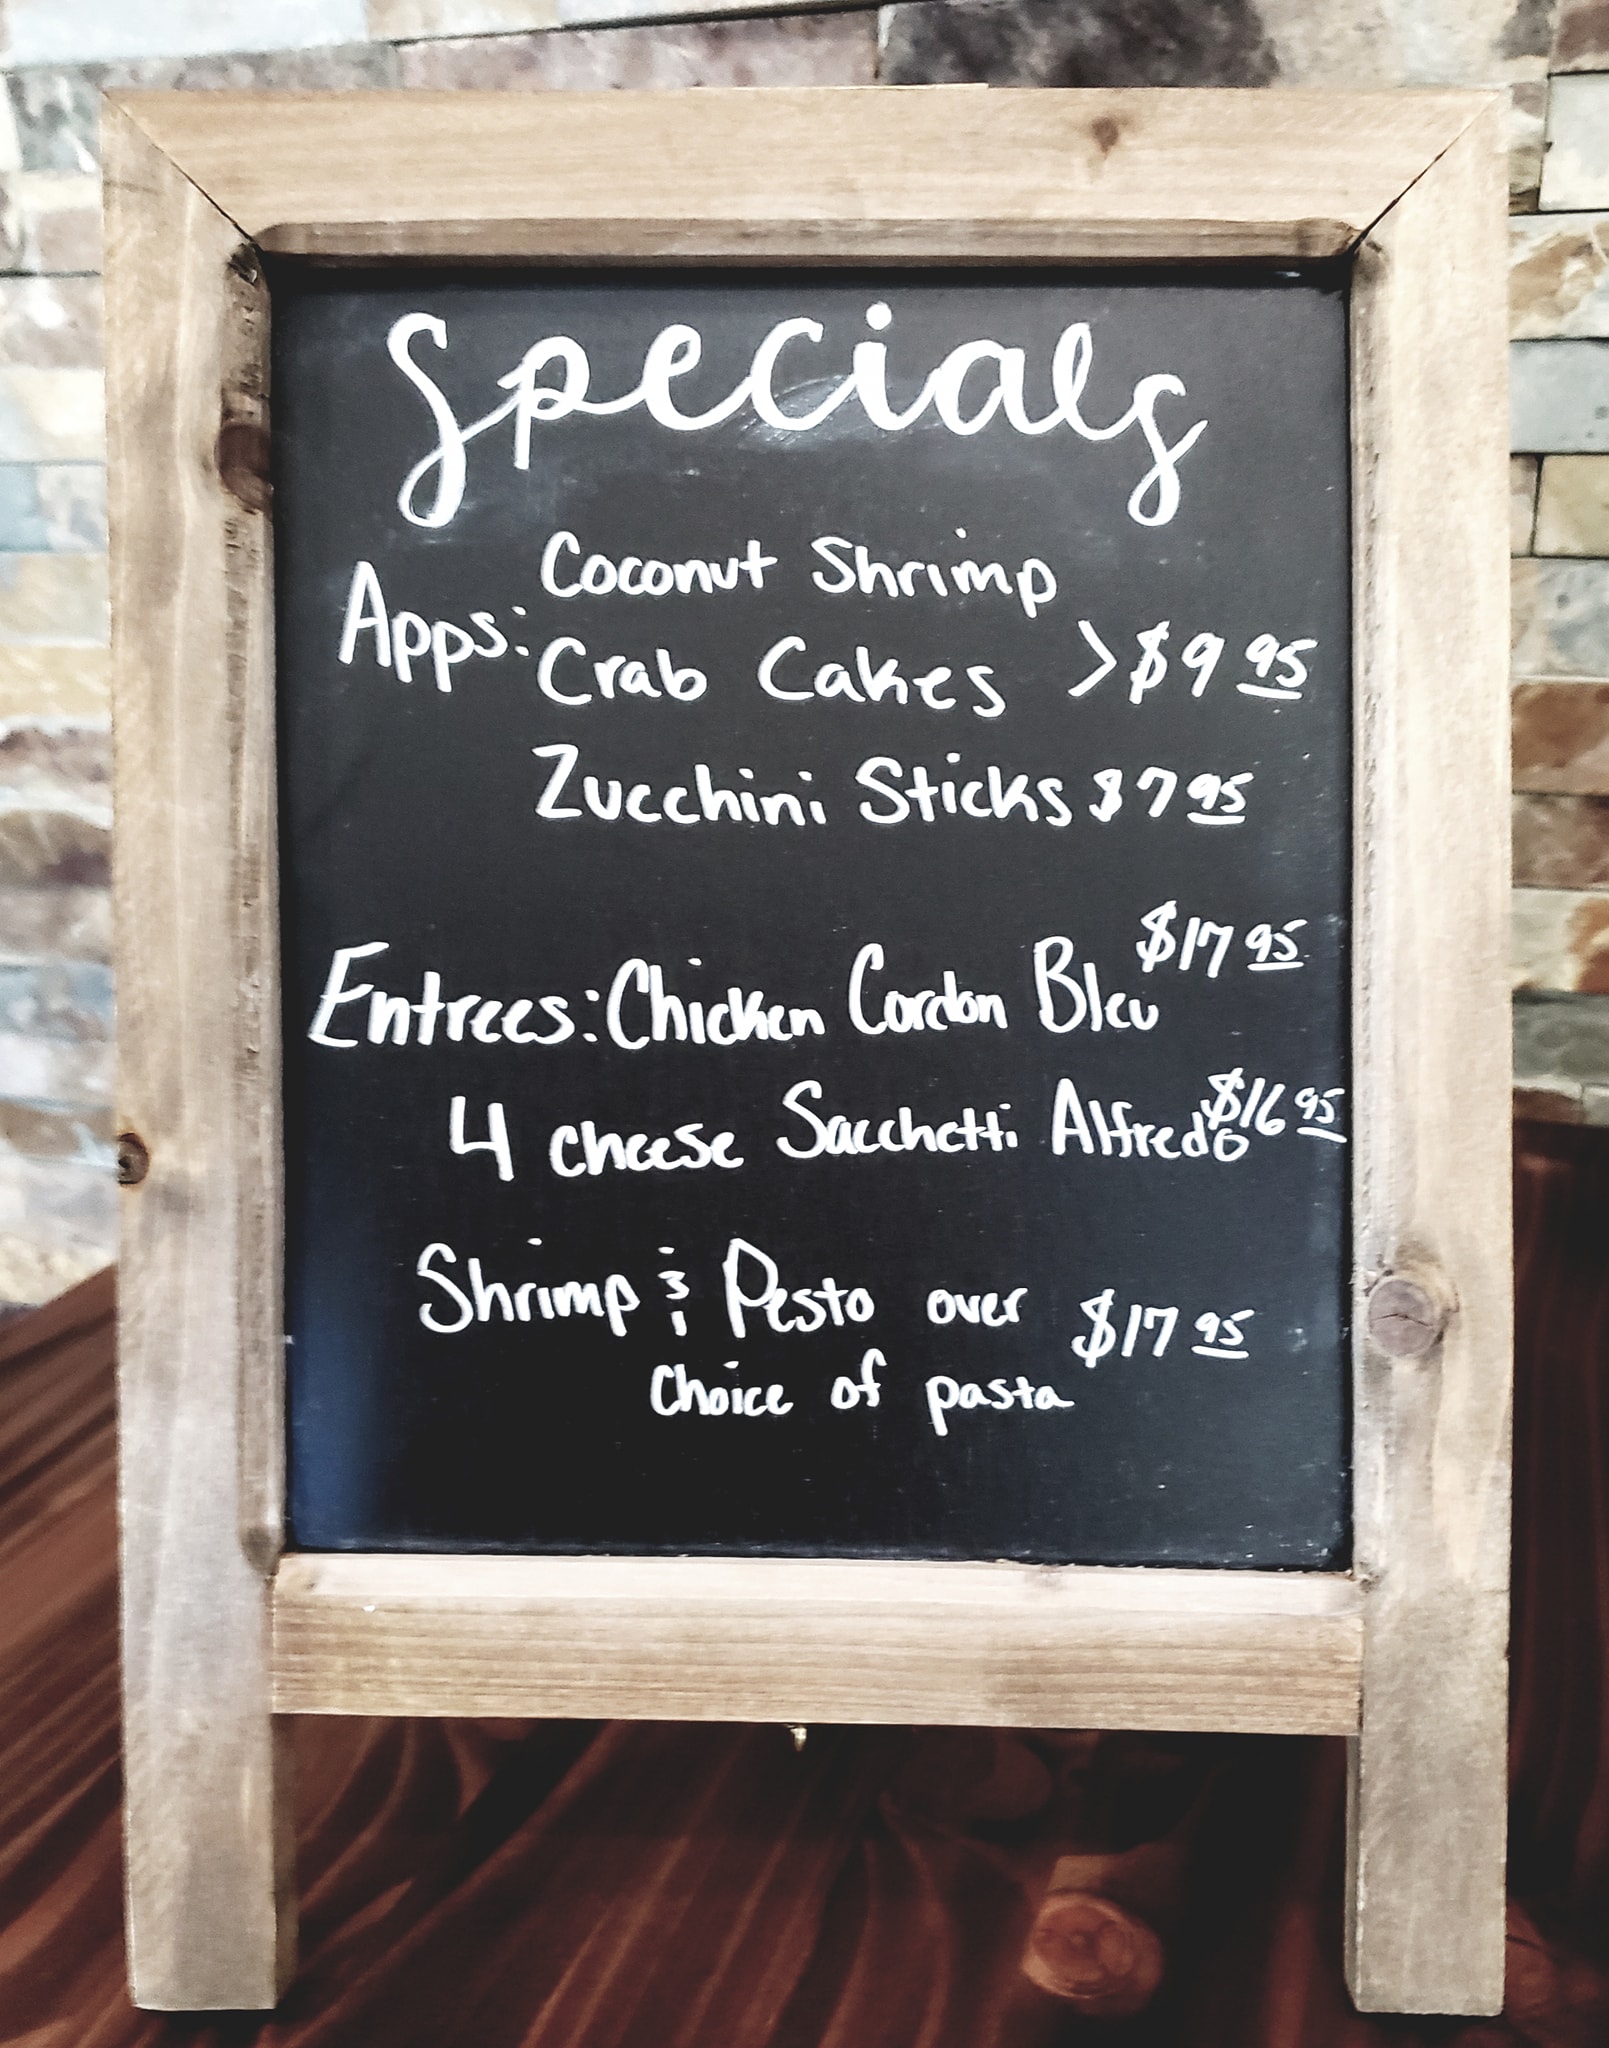 Specials
Coconut Shrimp
Apps: Crab Cakes > $9 95
Zucchini Sticks $7 95
$17 95
Entrees: Chicken Cordon Bleu
4 cheese Sacchetti Alfredo $16 95
Shrimp & Pesto over $17 95
Choice of pasta